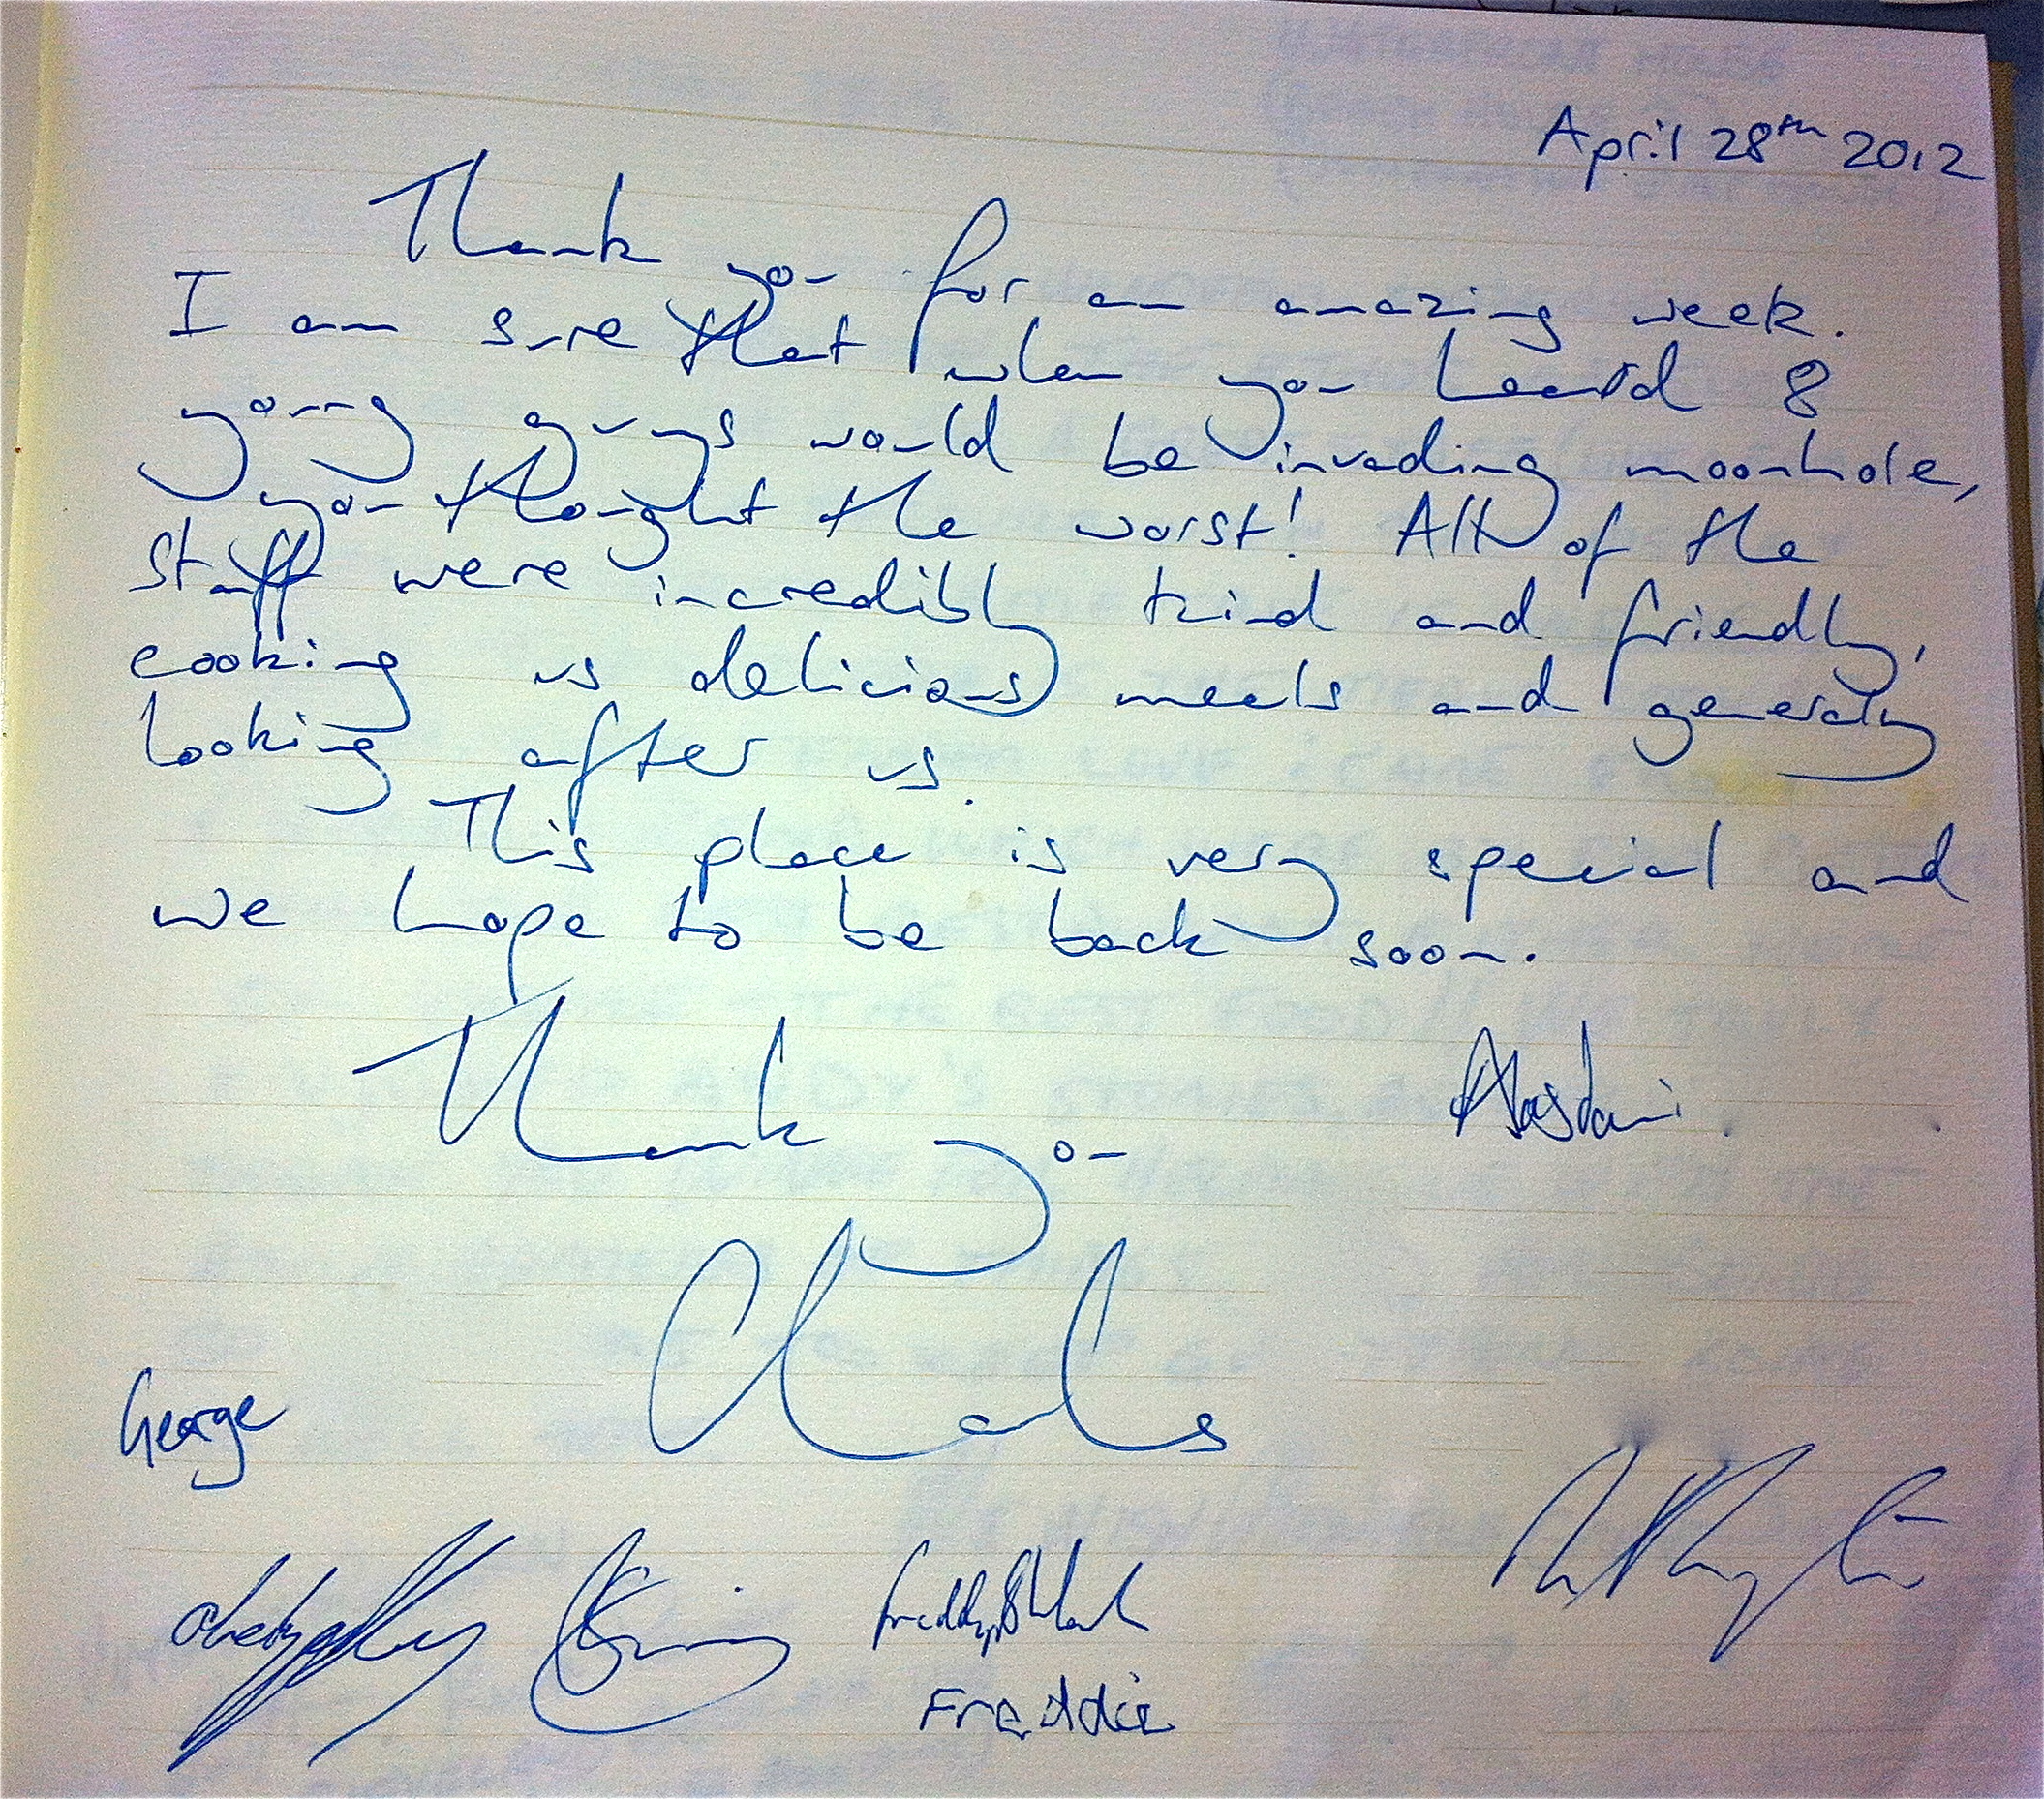 April 28th 2012
Thank you for an amazing week.
I am sure that when you heard 8
young guys would be invading moonhole,
you thought the worst! All of the
staff were incredibly kind and friendly,
cooking us delicious meals and generally
looking after us.
This place is very special and
we hope to be back soon.
Thank you
Alasdair
Charles
George
Freddie